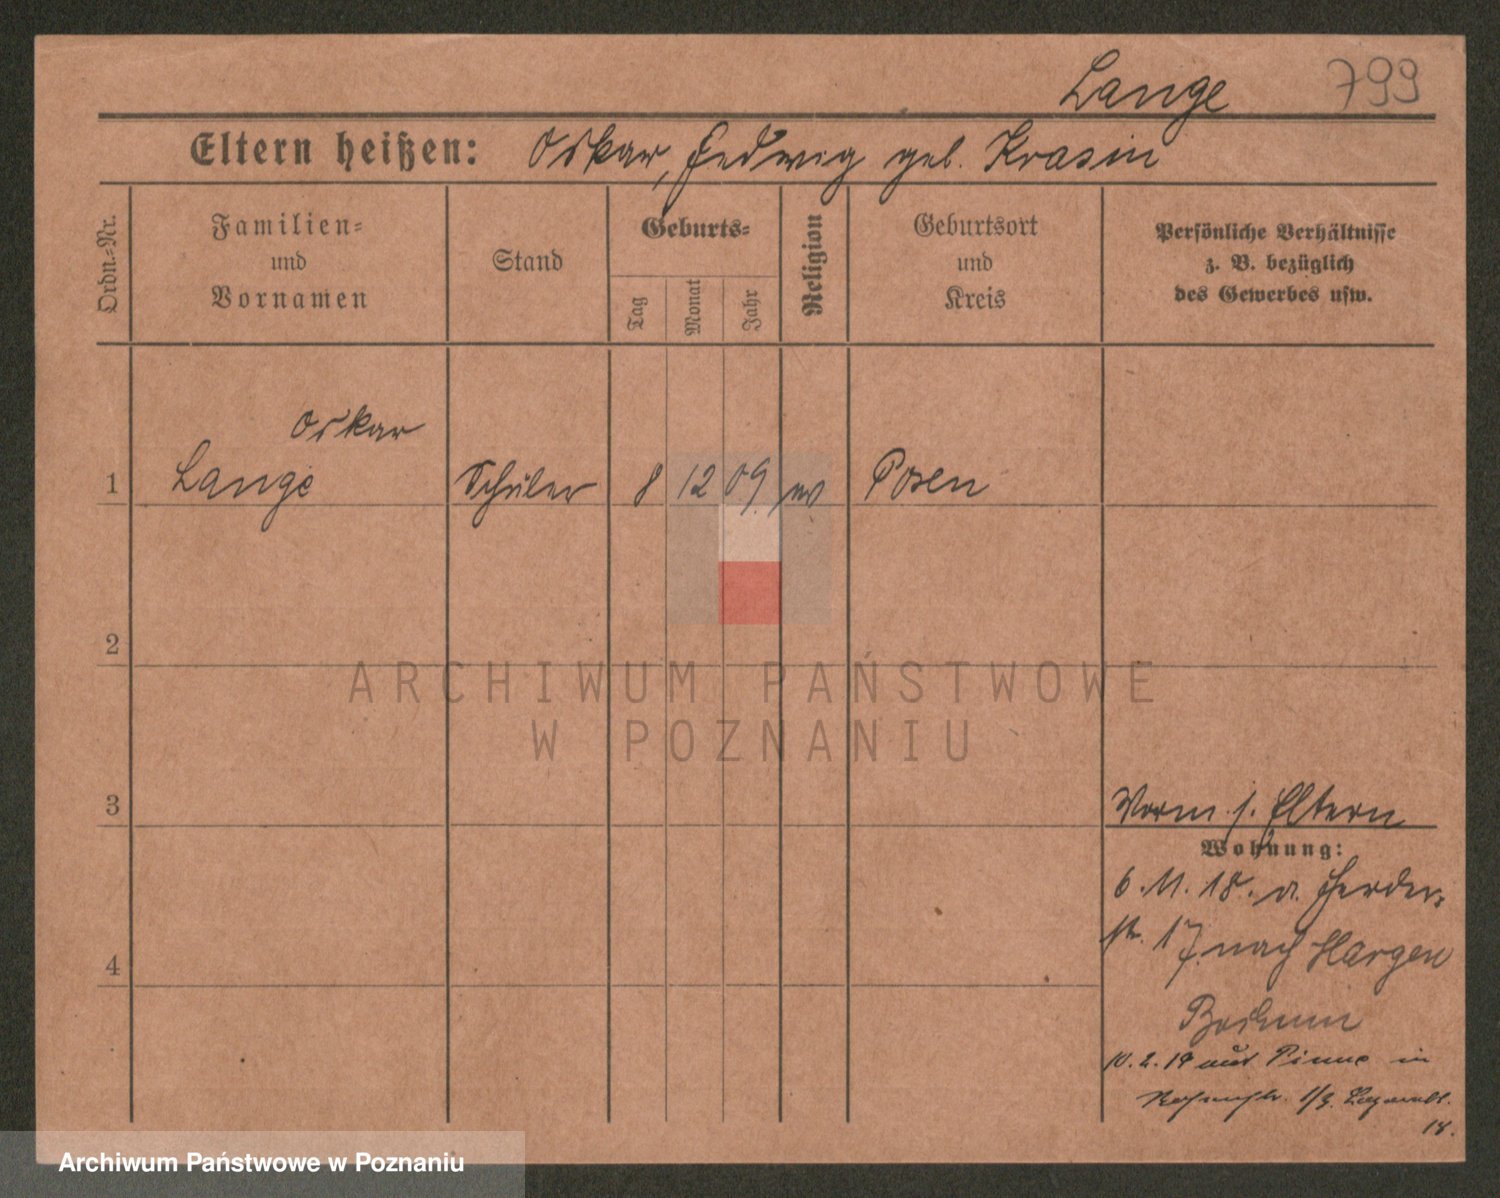 Lange 799
Eltern heißen: Oskar, Hedwig geb. Krasin
Ordn.-Nr.
Familien-
und
Vornamen
Stand
Geburts-
Tag
Monat
Jahr
Religion
Geburtsort
und
Kreis
Persönliche Verhältnisse
z. B. bezüglich
des Gewerbes usw.
Oskar
1 Lange Schüler 8 12 09. ev Posen
2
ARCHIWUM PAŃSTWOWE
W POZNANIU
3
Vorm. s. Eltern
Wohnung:
6.11.18. v. Herder-
str. 17. nach Hargen
4
Bochum
10.2.19 aus Pinne in
18.
Archiwum Państwowe w Poznaniu